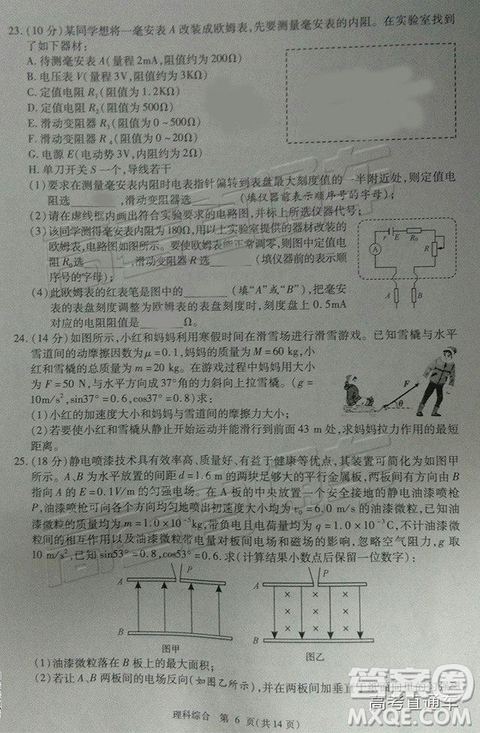 23.(10分)某同学想将一毫安表A改装成欧姆表,先要测量毫安表的内阻。在实验室找到
了如下器材:
A. 待测毫安表(量程2mA,阻值约为200Ω)
B. 电压表V(量程3V,阻值约为3KΩ)
C. 定值电阻R₁(阻值为1.2KΩ)
D. 定值电阻R₂(阻值为500Ω)
E. 滑动变阻器R₃(阻值为0~500Ω)
F. 滑动变阻器R₄(阻值为0~20Ω)
G. 电源E(电动势3V,内阻约为2Ω)
H. 单刀开关S一个,导线若干
(1)要求在测量毫安表内阻时电表指针偏转到表盘最大刻度值的一半附近处,则定值电
阻选______,滑动变阻器选______(填仪器前表示顺序号的字母);
(2)请在虚线框内画出符合实验要求的电路图,并标上所选仪器代号。
(3)该同学测得毫安表内阻为180Ω,用以上实验提供的器材改装的
欧姆表,电路图如图所示。要使欧姆表能正常调零,则图中定值电
阻R₀选______,滑动变阻器R选______(填仪器前的表示顺
序号的字母);
(4)此欧姆表的红表笔是图中的______(填“A”或“B”),把毫安
表的表盘刻度调整为欧姆表的表盘刻度时,刻度上0.5mA
对应的电阻值应是______Ω。
r E R₀
A
R
A B
24.(14分)如图所示,小红和妈妈利用寒假时间在滑雪场进行滑雪游戏。已知雪橇与水平
雪道间的动摩擦因数为μ=0.1,妈妈的质量为M=60kg,小
红和雪橇的总质量为m=20kg。在游戏过程中妈妈用大小
为F=50N,与水平方向成37°角的力斜向上拉雪橇。(g=
10m/s²,sin37°=0.6,cos37°=0.8)求:
(1)小红的加速度大小和妈妈与雪道间的摩擦力大小。
(2)若要使小红和雪橇从静止开始运动并能滑行到前面43m处,求妈妈拉力作用的最短
距离。
F
25.(18分)静电喷漆技术具有效率高、质量好、有益于健康等优点,其装置可简化为如图甲
所示。A、B为水平放置的间距d=1.6m的两块足够大的平行金属板,两板间有方向由B
指向A的E=0.1V/m的匀强电场。在A板的中央放置一个安全接地的静电油漆喷枪
P,油漆喷枪可向各个方向均匀地喷出初速度大小均为v₀=6.0m/s的油漆微粒,已知油
漆微粒的质量均为m=1.0×10⁻⁵kg、带负电且电荷量均为q=1.0×10⁻³C,不计油漆微粒
间的相互作用以及油漆微粒带电量对板间电场和磁场的影响,忽略空气阻力,g取
10m/s²,已知sin53°=0.8,cos53°=0.6。求(计算结果小数点后保留一位数字):
A P
B
图甲
A P
B
图乙
(1)油漆微粒落在B板上的最大面积;
(2)若让A、B两板间的电场反向(如图乙所示),并在两板间加垂直
理科综合 第6页(共14页)
答案圈
高考直通车
MXQE.COM